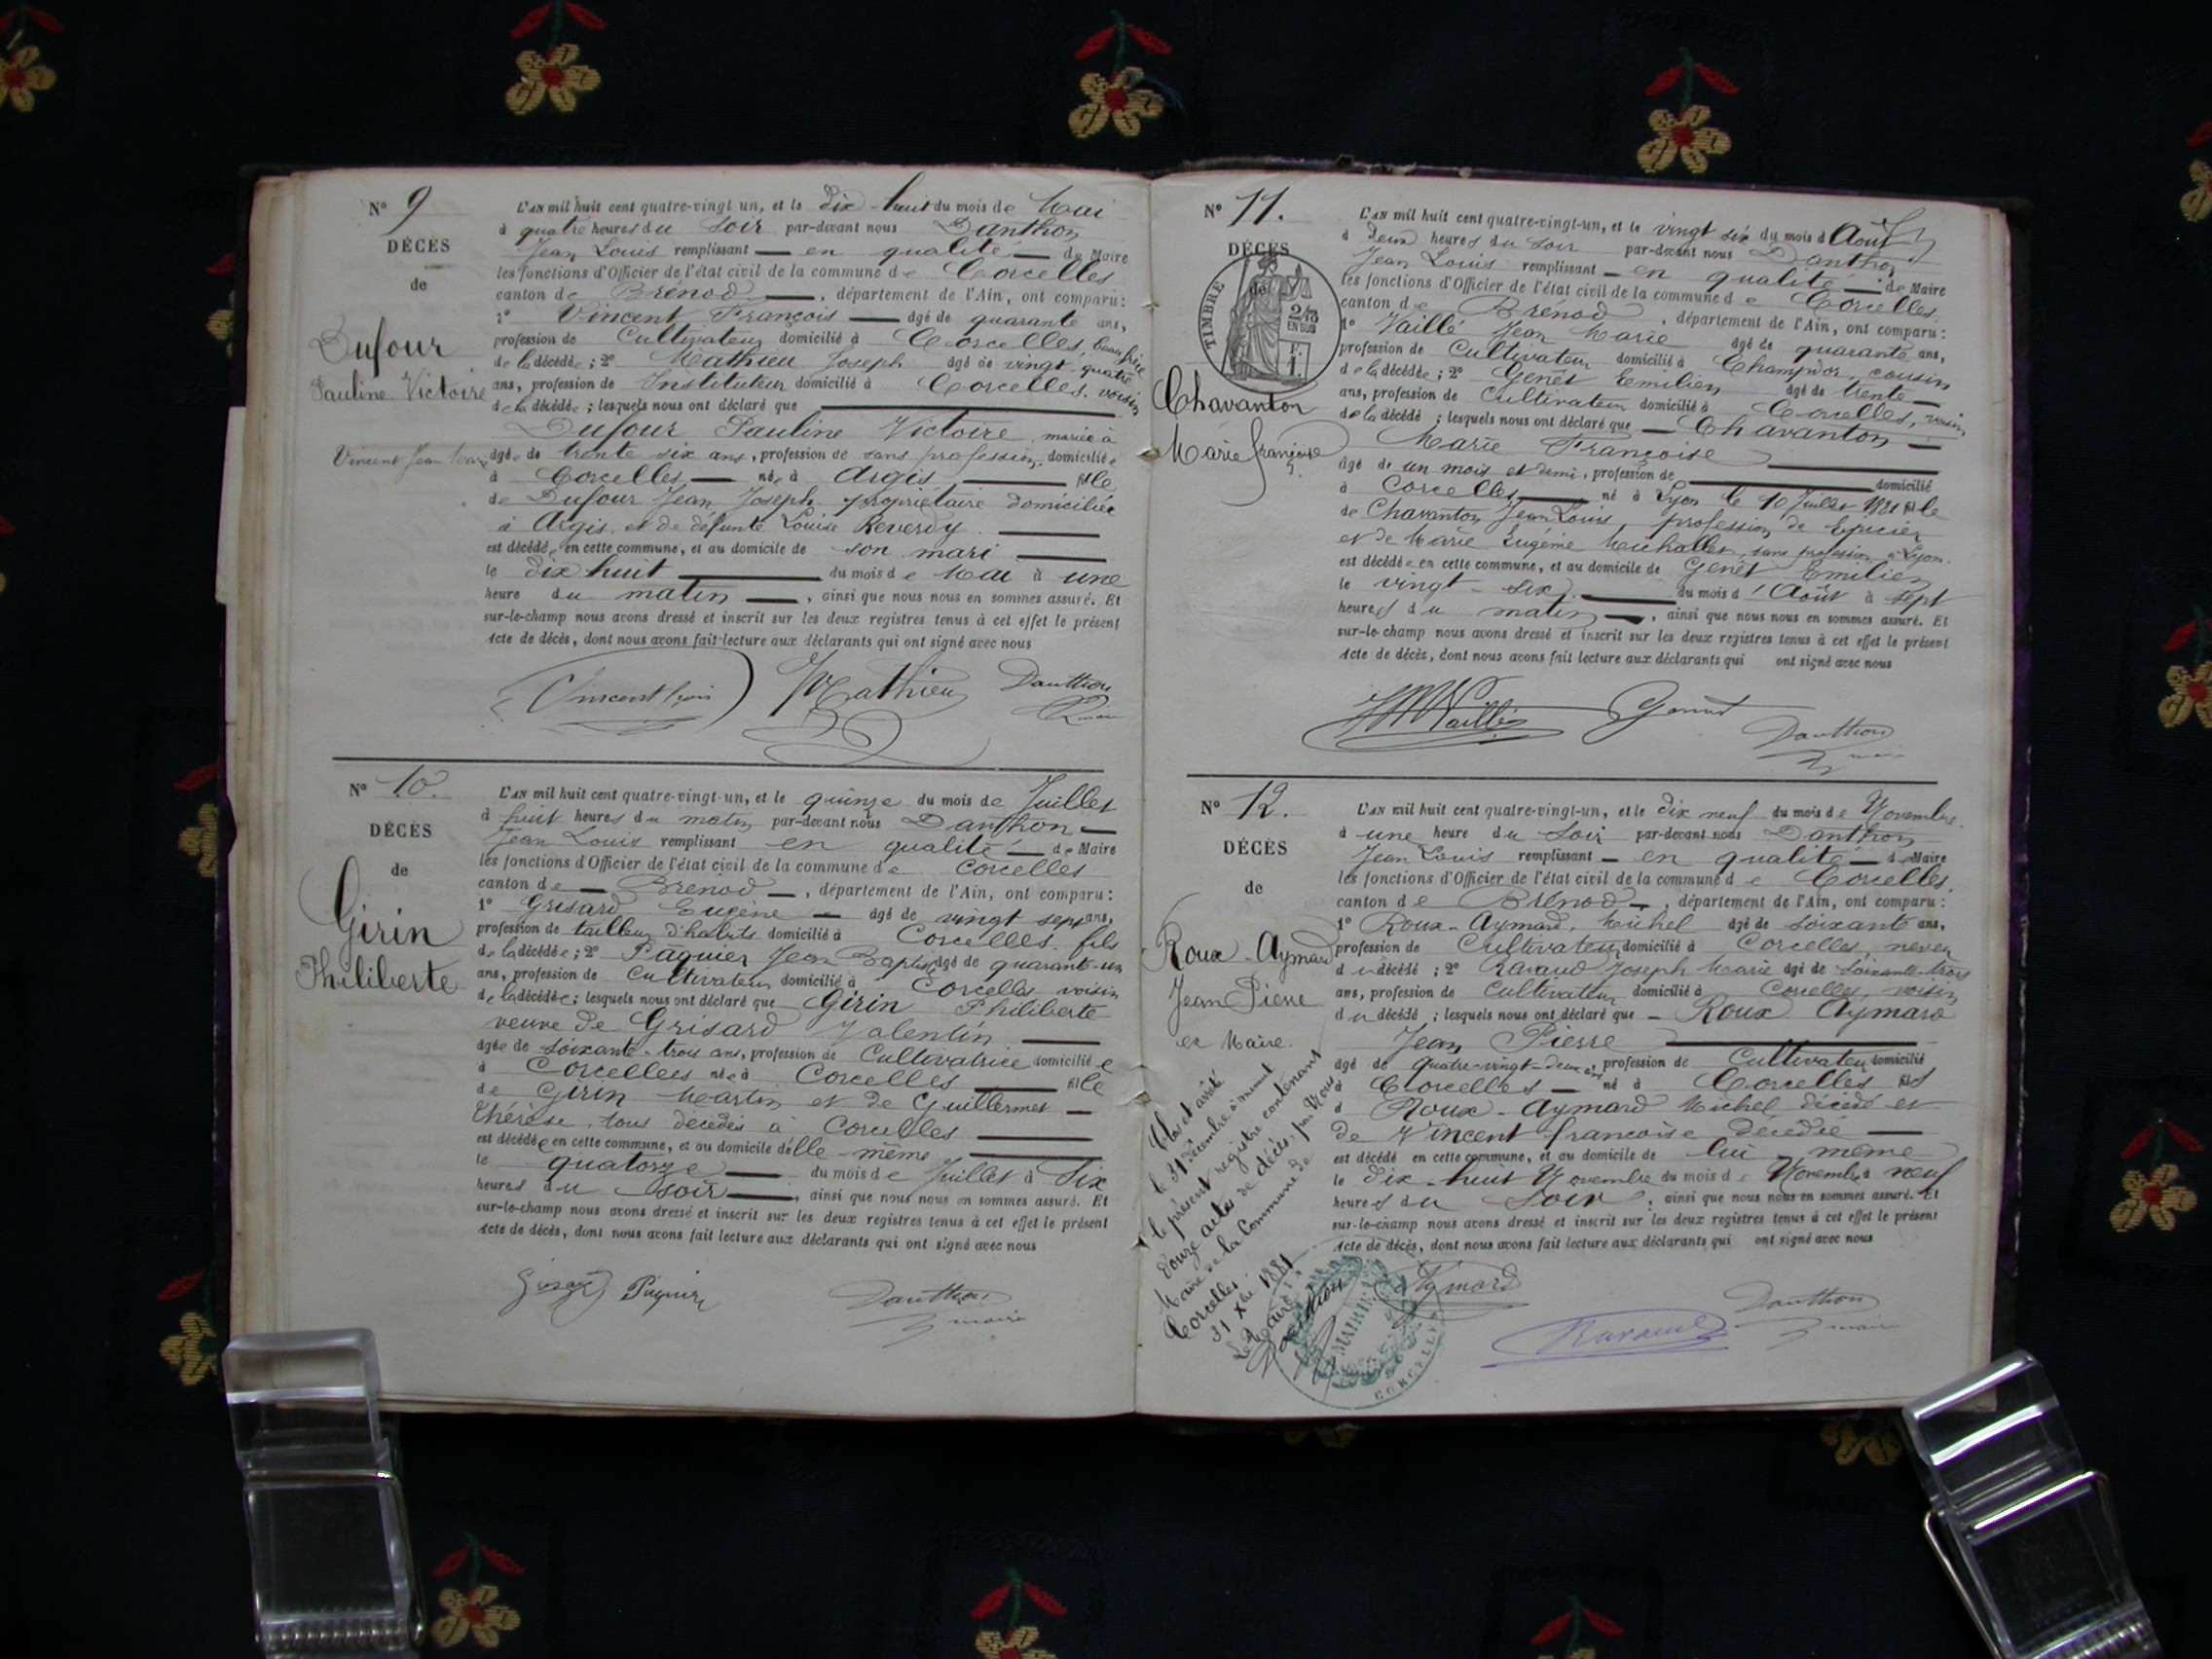 N° 9
DÉCÈS
de
Dufour
Pauline Victoire
Vincent Jean Marie
L'AN mil huit cent quatre-vingt un, et le dix-huit du mois de Mai
à quatre heures du soir par-devant nous Danthon
Jean Louis remplissant en qualité de Maire
les fonctions d'Officier de l'état civil de la commune de Corcelles
canton de Brénod, département de l'Ain, ont comparu:
1° Vincent François âgé de quarante ans,
profession de Cultivateur domicilié à Corcelles, beau frère
de la décédée; 2° Mathieu Joseph âgé de vingt quatre
ans, profession de Instituteur domicilié à Corcelles. voisin
de la décédée; lesquels nous ont déclaré que
Dufour Pauline Victoire mariée à
âgée de trente six ans, profession de sans profession, domiciliée
à Corcelles née à Argis fille
de Dufour Jean Joseph propriétaire domicilié
à Argis. et de défunte Louise Reverdy
est décédée en cette commune, et au domicile de son mari
le dix huit du mois de Mai à une
heure du matin, ainsi que nous nous en sommes assuré. Et
sur-le-champ nous avons dressé et inscrit sur les deux registres tenus à cet effet le présent
Acte de décès, dont nous avons fait lecture aux déclarants qui ont signé avec nous
Vincent fçois Mathieu Danthon
maire
N° 10.
DÉCÈS
de
Girin
Philiberte
L'AN mil huit cent quatre-vingt-un, et le quinze du mois de Juillet
à huit heures du matin par-devant nous Danthon
Jean Louis remplissant en qualité de Maire
les fonctions d'Officier de l'état civil de la commune de Corcelles
canton de Brenod, département de l'Ain, ont comparu:
1° Grisard Eugène âgé de vingt sept ans,
profession de tailleur d'habits domicilié à Corcelles. fils
de la décédée; 2° Paquier Jean Baptiste âgé de quarante-un
ans, profession de Cultivateur domicilié à Corcelles voisin
de la décédée; lesquels nous ont déclaré que Girin Philiberte
veuve de Grisard Valentin
âgée de soixante-trois ans, profession de Cultivatrice domiciliée
à Corcelles née à Corcelles fille
de Girin Martin et de Guillermet
Thérèse, tous décédés à Corcelles
est décédée en cette commune, et au domicile d'elle-même
le quatorze du mois de Juillet à Six
heures du soir, ainsi que nous nous en sommes assuré. Et
sur-le-champ nous avons dressé et inscrit sur les deux registres tenus à cet effet le présent
Acte de décès, dont nous avons fait lecture aux déclarants qui ont signé avec nous
Paquier Danthon
maire
N° 11.
DÉCÈS
de
TIMBRE
EN SUS
Chavanton
Marie françoise
L'AN mil huit cent quatre-vingt-un, et le vingt six du mois d'Août
à deux heures du soir par-devant nous Danthon
Jean Louis remplissant en qualité de Maire
les fonctions d'Officier de l'état civil de la commune de Corcelles
canton de Brénod, département de l'Ain, ont comparu:
1° Vaillé Jean Marie âgé de quarante ans,
profession de Cultivateur domicilié à Champdor, cousin
de la décédée; 2° Genêt Emilien âgé de trente
ans, profession de Cultivateur domicilié à Corcelles, voisin
de la décédé; lesquels nous ont déclaré que Chavanton
Marie Françoise
âgé de un mois et demi, profession de domicilié
à Corcelles né à Lyon le 10 Juillet 1881 fille
de Chavanton Jean Louis, profession de Epicier
et de Marie Eugénie sans profession à Lyon.
est décédée en cette commune, et au domicile de Genêt Emilien
le vingt-six du mois d'Août à sept
heures du matin, ainsi que nous nous en sommes assuré. Et
sur-le-champ nous avons dressé et inscrit sur les deux registres tenus à cet effet le présent
Acte de décès, dont nous avons fait lecture aux déclarants qui ont signé avec nous
JM Vaillé Danthon
maire
N° 12.
DÉCÈS
de
Roux-Aymard
Jean Pierre
ex Maire.
L'AN mil huit cent quatre-vingt-un, et le dix neuf du mois de Novembre
à une heure du Soir par-devant nous Danthon
Jean Louis remplissant en qualité de Maire
les fonctions d'Officier de l'état civil de la commune de Corcelles.
canton de Brénod, département de l'Ain, ont comparu:
1° Roux-Aymard, Michel âgé de soixante ans,
profession de Cultivateur domicilié à Corcelles, neveu
du décédé; 2° Ravaud Joseph Marie âgé de soixante-trois
ans, profession de Cultivateur domicilié à Corcelles, voisin
du décédé; lesquels nous ont déclaré que Roux Aymard
Jean Pierre
âgé de quatre-vingt-deux ans profession de Cultivateur domicilié
à Corcelles né à Corcelles fils
d Roux-Aymard Michel décédé et
de Vincent françoise décédée
est décédé en cette commune, et au domicile de lui même
le dix-huit Novembre du mois de Novembre neuf
heures du Soir, ainsi que nous nous en sommes assuré. Et
sur-le-champ nous avons dressé et inscrit sur les deux registres tenus à cet effet le présent
Acte de décès, dont nous avons fait lecture aux déclarants qui ont signé avec nous
Aymard Danthon
Ravaud maire
Clos et arrêté
le 31 décembre à minuit
le présent registre contenant
douze actes de décès, par Nous
Maire de la Commune de
Corcelles.
31 Xbre 1881
Le Maire
Danthon
MAIRIE
CORCELLES